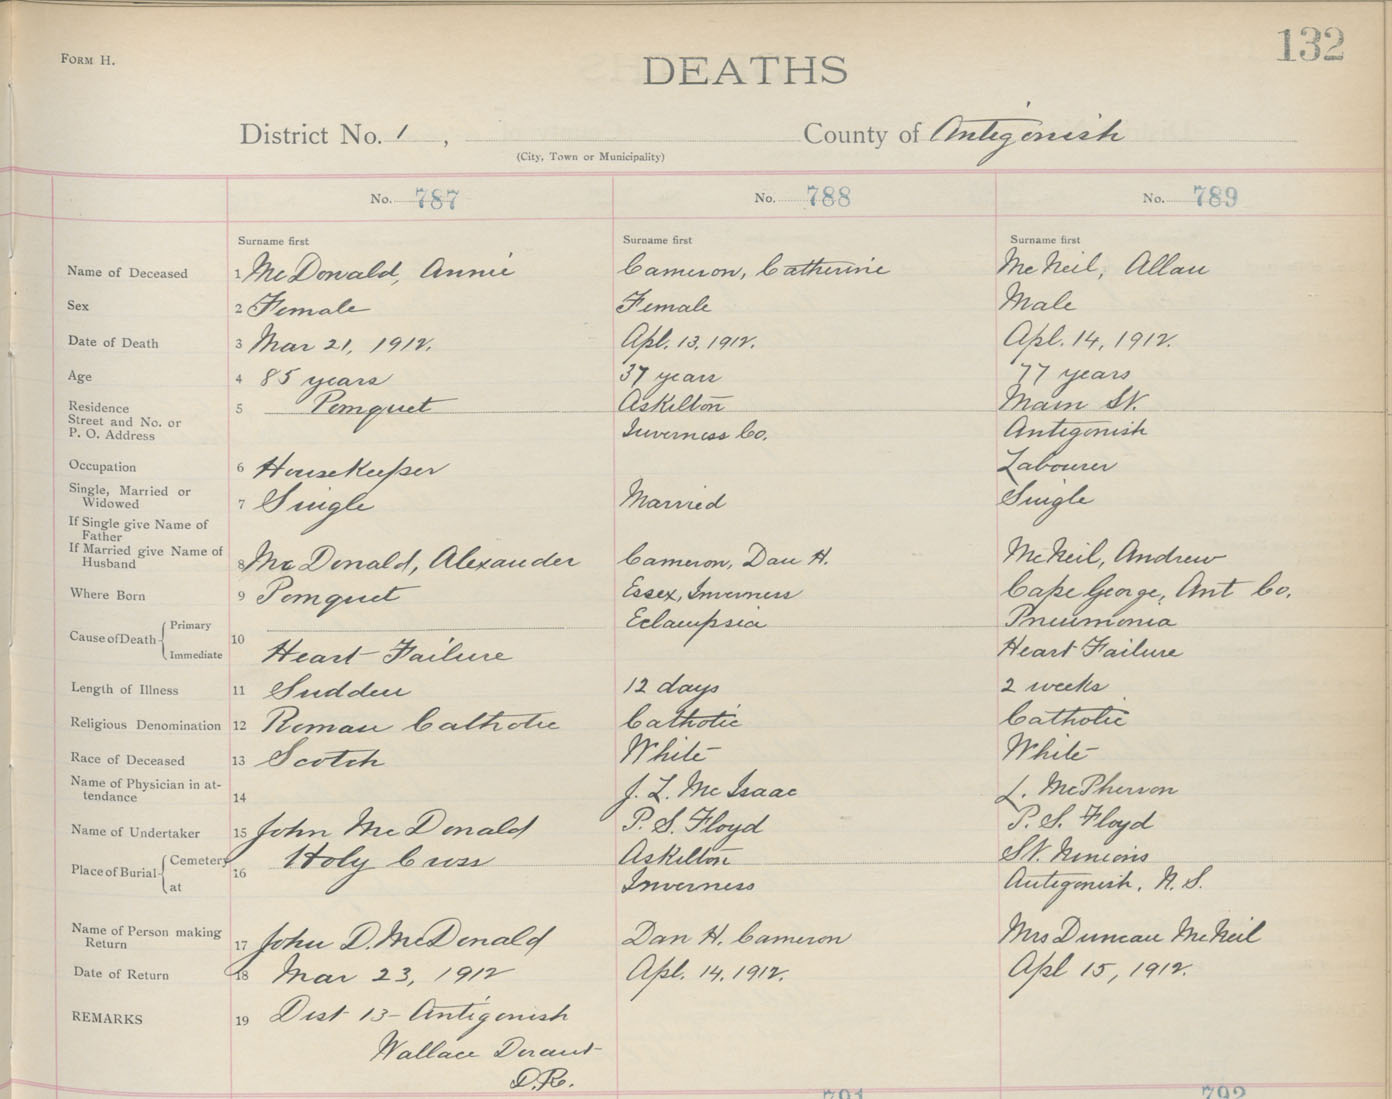 FORM H.
132
DEATHS
District No. 1, County of Antigonish
(City, Town or Municipality)
No. 787 No. 788 No. 789
Surname first Surname first Surname first
Name of Deceased 1 McDonald, Annie Cameron, Catherine McNeil, Allan
Sex 2 Female Female Male
Date of Death 3 Mar 21, 1912. Apl. 13, 1912. Apl. 14, 1912.
Age 4 85 years 37 years 77 years
Residence 5 Pomquet Askilton Main St.
Street and No. or
P. O. Address Inverness Co. Antigonish
Occupation 6 Housekeeper Labourer
Single, Married or
Widowed 7 Single Married Single
If Single give Name of
Father
If Married give Name of
Husband 8 McDonald, Alexander Cameron, Dan H. McNeil, Andrew
Where Born 9 Pomquet Essex, Inverness Cape George, Ant Co.
Cause of Death 10 Primary Eclampsia Pneumonia
Immediate Heart Failure Heart Failure
Length of Illness 11 Sudden 12 days 2 weeks
Religious Denomination 12 Roman Catholic Catholic Catholic
Race of Deceased 13 Scotch White White
Name of Physician in at-
tendance 14 J. L. McIsaac L. McPherson
Name of Undertaker 15 John McDonald P. S. Floyd P. S. Floyd
Place of Burial 16 Cemetery Holy Cross Askilton St. Ninians
at Inverness Antigonish, N. S.
Name of Person making
Return 17 John D. McDonald Dan H. Cameron Mrs Duncan McNeil
Date of Return 18 Mar 23, 1912 Apl. 14, 1912. Apl 15, 1912.
REMARKS 19 Dist 13 - Antigonish
Wallace
D.R.
791 792